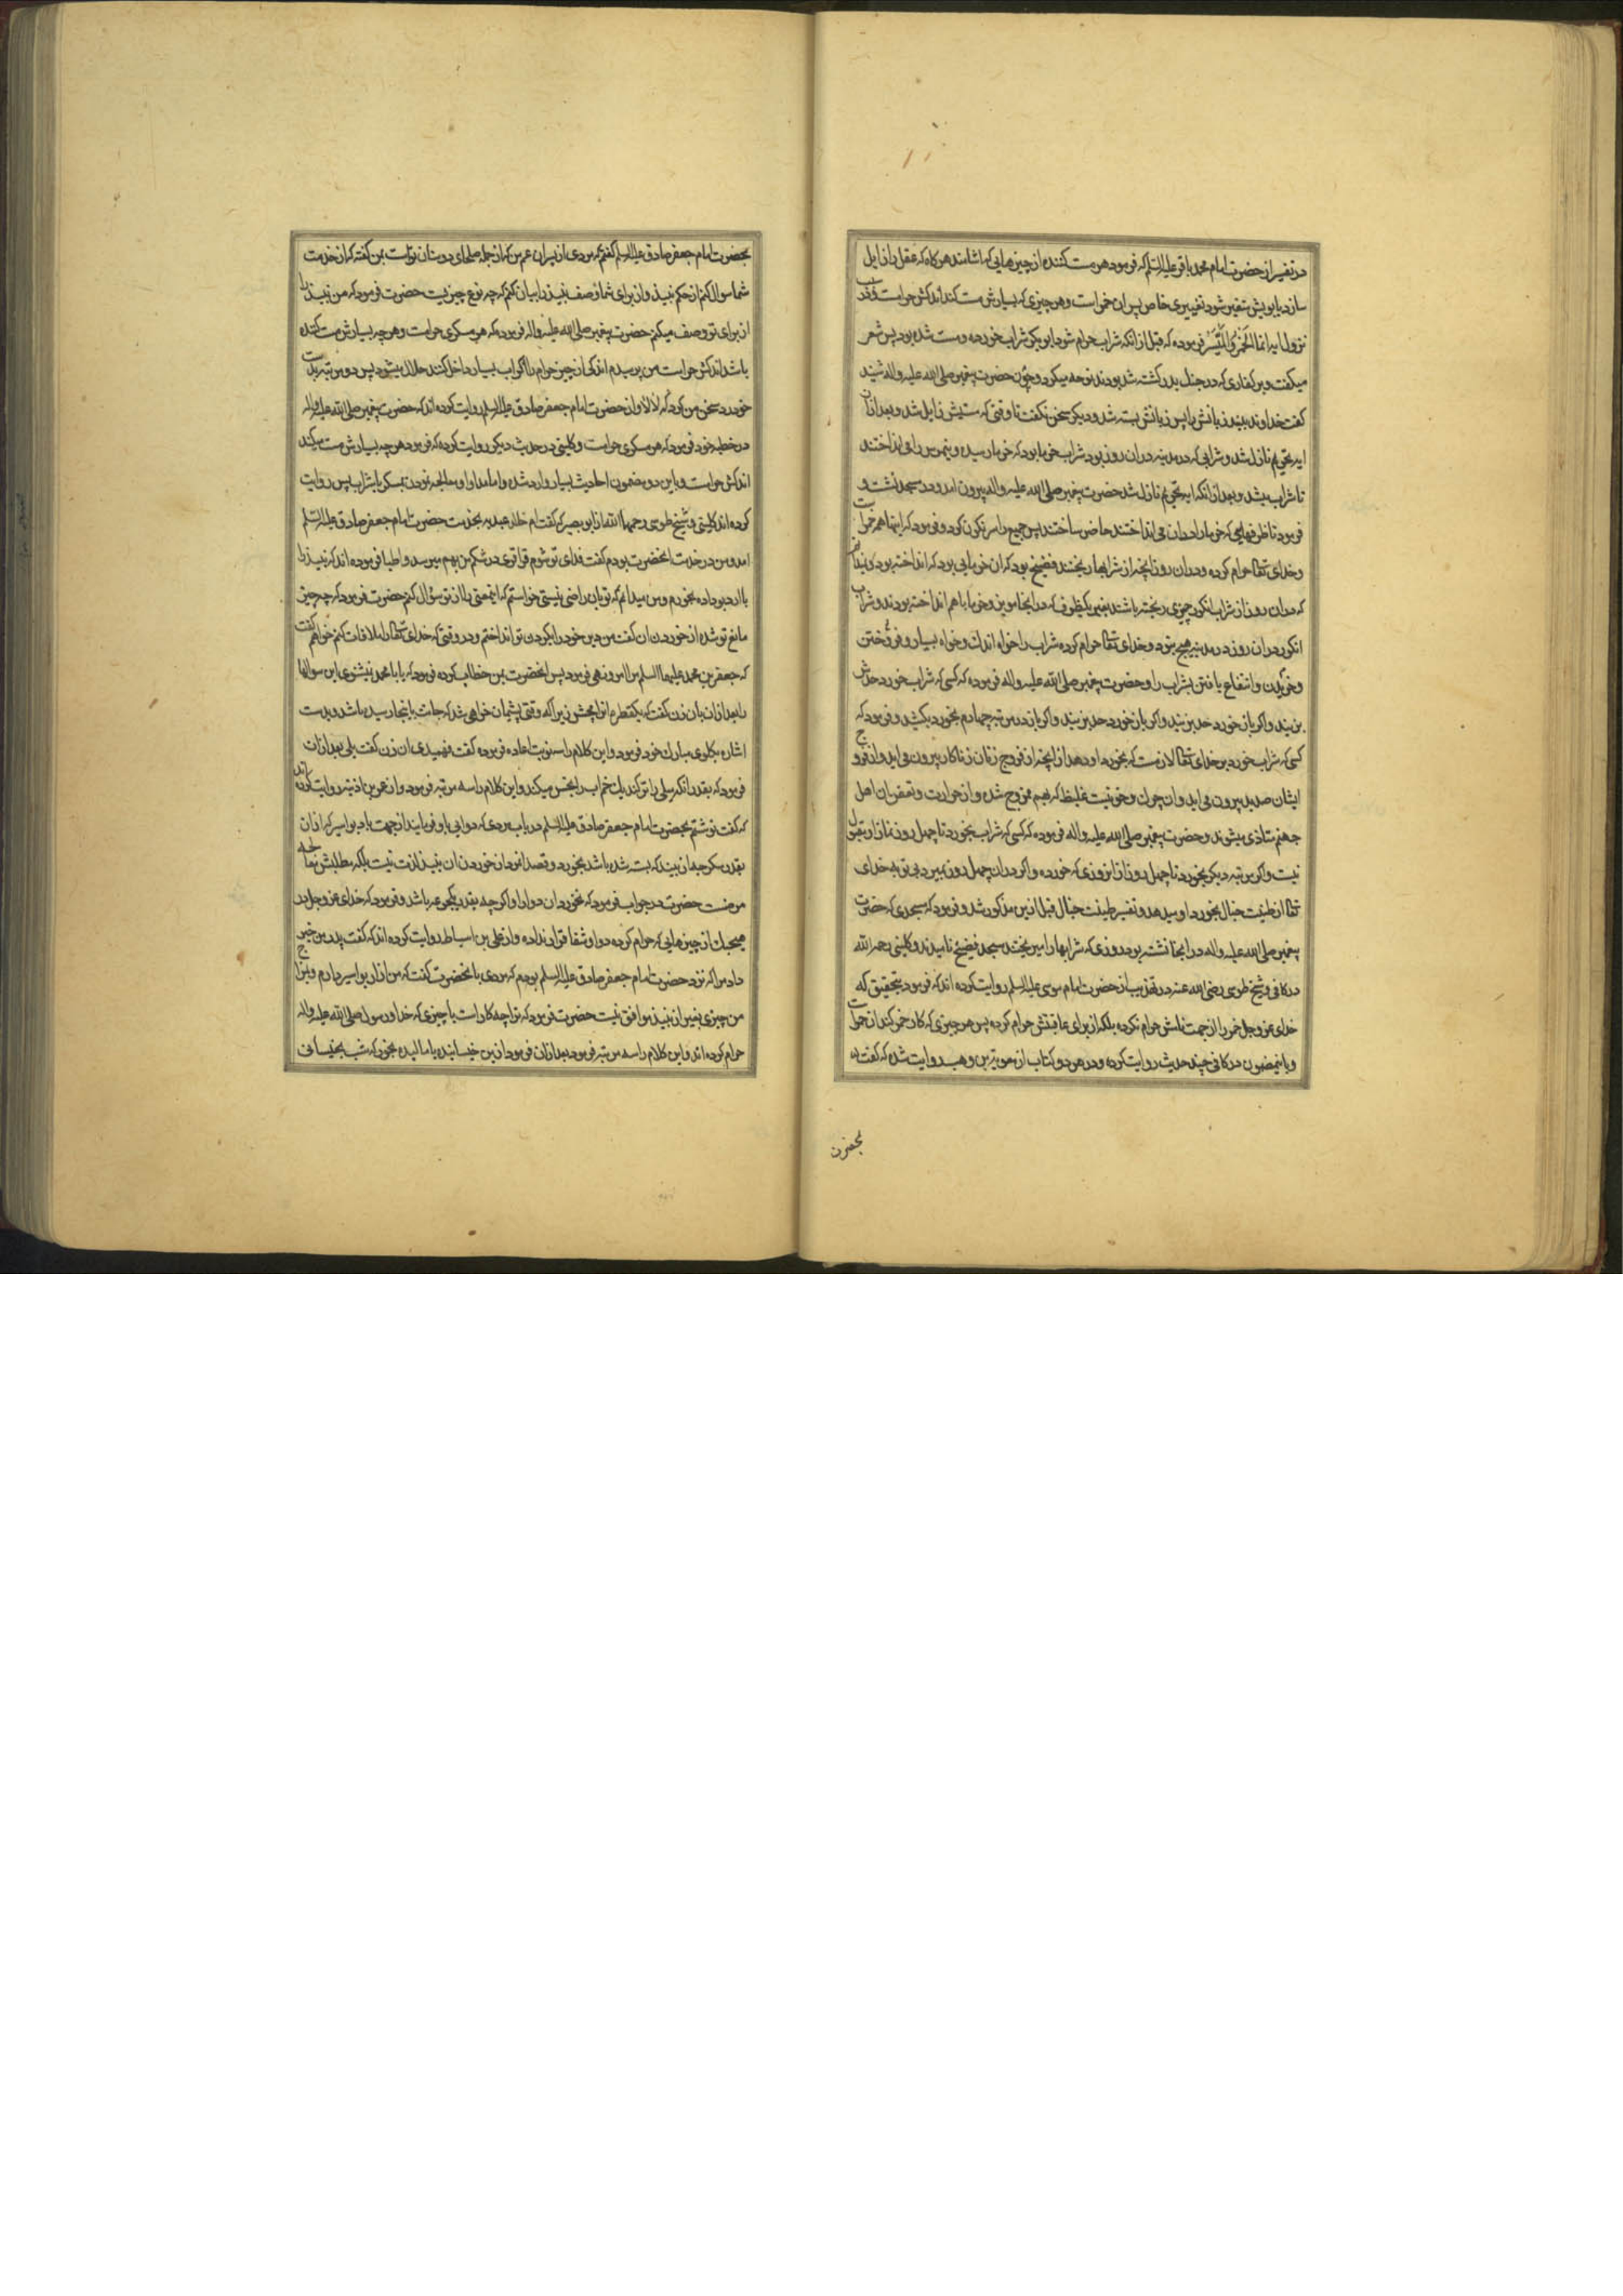 در تفسیر از حضرت امام محمد باقر علیه السلام که فرمود هر مست کننده از چیزهایی که اشامند هر کاه که عقل را زایل
سازد یا بویش متغیر شود تغییری خاص پس ان خمر است و هر چیزی که بسیارش مست کند اندکش حرامست و در سبب
نزول ایه انما الخمر و المیسر فرموده که قبل از انکه شراب حرام شود ابو بکر شراب خورده و مست شده بود پس شعر
میکفت و بر کفاری که در جنک بدر کشته شده بودند نوحه میکرد و چون حضرت پیغمبر صلی الله علیه و اله شنید
کفت خداوند ببند زبانش را پس زبانش بسته شد و دیکر سخن نکفت تا وقتی که مستیش زایل شد و بعد ازان
ایه تحریم نازل شد و شرابی که در مدینه در ان روز بود شراب خرما بود که خرما رسیده و نیمرس را می انداختند
تا شراب میشد و بعد از انکه ایه تحریم نازل شد حضرت پیغمبر صلی الله علیه و اله بیرون امد و در مسجد نشست و
فرمود تا ظرفهایی که خرما را در ان می انداختند حاضر ساختند پس جمیع را سرنکون کرد و فرمود که اینها همه حرامست
و خدای تعالی حرام کرده و در ان روز انچه از شرابها ریختند فضیخ بود که ان خرمایی بود که انداخته بودند و نیدانم
که در ان روز از شراب انکور چیزی ریخته باشند بغیر یکظرف که در انجا مویز و خرما با هم انداخته بودند و شراب
انکور در ان روز در مدینه هیچ نبود و خدای تعالی حرام کرده شراب را خواه اندک و خواه بسیار و فروختن
و خریدن و انتفاع یافتن بشراب را و حضرت پیغمبر صلی الله علیه و اله فرموده که کسی که شراب خورد حدش
بزنید و اکر باز خورد حد بزنید و اکر باز خورد حد بزنید و اکر باز در مرتبه چهارم بخورد بکشید و فرمود که
کسی که شراب خورد بر خدای تعالی لازمست که بخورد او دهد از انچه از فروج زنان زناکار بیرون می اید و از فروج
ایشان صدید بیرون می اید و ان چرک و خونیست غلیظ که بهم ممزوج شده و از حرارت و تعفن ان اهل
جهنم متاذی میشوند و حضرت پیغمبر صلی الله علیه و اله فرموده که کسی که شراب بخورد تا چهل روز نماز او مقبول
نیست و اکر مرتبه دیکر بخورد تا چهل روز از انروزی که خورده و اکر در ان چهل روز بمیرد بی توبه خدای
تعالی از طینت خبال بخورد او میدهد و تفسیر طینت خبال قبل ازین مذکور شد و فرمود که مسجدی که حضرت
پیغمبر صلی الله علیه و اله در انجا نشسته بود روزی که شرابها را میریختند مسجد فضیخ نامیدند و کلینی رحمه الله
در کافی و شیخ طوسی رضی الله عنه در تهذیب از حضرت امام موسی علیه السلام روایت کرده اند که فرمود بتحقیق که
خدای عز و جل خمر را از جهت نامش حرام نکرده بلکه از برای عاقبتش حرام کرده پس هر چیزی که کار خمر کند ان حرامست
و باینمضمون در کافی چند حدیث روایت کرده و در هر دو کتاب از معویة بن وهب روایت شده که کفت
بحضرت
بحضرت امام جعفر صادق علیه السلام کفتم که مردی از پسران عم من که از جمله صلحای دوستان تواست بمن کفته که از خدمت
شما سوال کنم از حکم نبیذ و از برای شما وصف نبیذ را بیان کنم که چه نوع چیزیست حضرت فرمود که من نبیذ را
از برای تو وصف میکنم حضرت پیغمبر صلی الله علیه و اله فرموده که هر مسکری حرامست و هر چه بسیارش مست کننده
باشد اندکش حرامست من پرسیدم اندکی از چیز حرام را اکر اب بسیار داخل کنند حلال میشود پس دو مرتبه بدست
خود رد سخن من کرد که لا لا و از حضرت امام جعفر صادق علیه السلام روایت کرده اند که حضرت پیغمبر صلی الله علیه و اله
در خطبه خود فرمود که هر مسکری حرامست و کلینی در حدیث دیکر روایت کرده که فرمود هر چه بسیارش مست میکند
اندکش حرامست و باین دو مضمون احادیث بسیار وارد شده و اما مداوا و معالجه نمودن بمسکر یا بشراب پس روایت
کرده اند کلینی و شیخ طوسی رحمهما الله از ابو بصیر که کفت ام خالد عبدیه بخدمت حضرت امام جعفر صادق علیه السلام
امد و من در خدمت انحضرت بودم کفت فدای تو شوم قراقری در شکم من بهم میرسد و اطبا فرموده اند که نبیذ را
با ارد بو داده بخورم و من میدانم که تو بان راضی نیستی خواستم که اینمعنی را از تو سؤال کنم حضرت فرمود که چه چیز
مانع تو شده از خوردن ان کفت من دین خود را بکردن تو انداختم و در وقتی که خدای تعالی را ملاقات کنم خواهم کفت
که جعفر بن محمد علیهما السلام مرا امر و نهی فرمود پس انحضرت بمن خطاب کرده فرمود که یا ابا محمد نمیشنوی این سوالها
را بعد ازان بان زن کفت که یکقطره انرا مچش زیرا که وقتی پشیمان خواهی شد که جانت باینجا رسیده باشد و بدست
اشاره بکلوی مبارک خود فرمود و این کلام را سه نوبت اعاده فرموده کفت فهمیدی ان زن کفت بلی بعد ازان
فرمود که بقدر انکه میلی را تر کند یک خم اب را نجس میکند و این کلام را سه مرتبه فرمود و از عمر بن اذینه روایت کرده اند
که کفت نوشتم بحضرت امام جعفر صادق علیه السلام در باب مردی که دوایی باو فرمایند از جهت باد بواسیر که ازان
بقدر سکرجه از نبیذ که بسته شده باشد بخورد و قصد او از خوردن ان نبیذ لذت نیست بلکه مطلبش معالجه
مرضست حضرت در جواب فرمود که نخورد ان دوا را و اکر چه بقدر یکجرعه باشد و فرمود که خدای عز و جل در
هیچیک از چیزهایی که حرام کرده دوا و شفا قرار نداده و از علی بن اسباط روایت کرده اند که کفت پدر من خبر
داد مرا که نزد حضرت امام جعفر صادق علیه السلام بودم که مردی بانحضرت کفت که من ازار بواسیر دارم و بمزاج
من چیزی بغیر از نبیذ موافق نیست حضرت فرمود که ترا چه کار است با چیزی که خدا و رسول صلی الله علیه و اله
حرام کرده اند و این کلام را سه مرتبه فرمود بعد ازان فرمود ازین خیسانیده یا مالیده بخور که شب بخیسانی